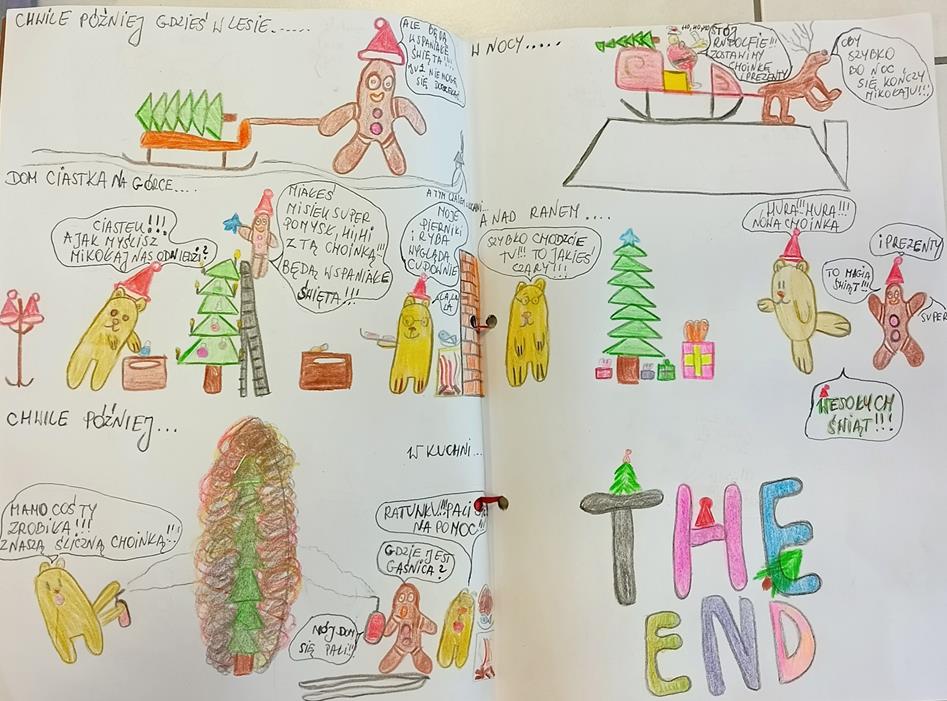 CHWILE PÓŹNIEJ GDZIEŚ W LESIE......
ALE BĘDĄ
WSPANIAŁE
ŚWIĘTA!!!!
JUŻ NIE MOGĘ
SIĘ
DOM CIASTKA NA GÓRCE....
CIASTEK!!!
A JAK MYŚLISZ
MIKOŁAJ NAS ODWIEDZI?
MIAŁEŚ
MISIEK SUPER
POMYSŁ, HI, HI
Z TĄ CHOINKĄ!!!
BĘDĄ WSPANIAŁE
ŚWIĘTA!!!
A TYM CZASEM
MOJE
PIERNIKI
I RYBA
WYGLĄDA
CUDOWNIE
LA LA
LA
CHWILE PÓŹNIEJ...
MAMO COŚ TY
ZROBIŁA!!!
Z NASZĄ ŚLICZNĄ CHOINKĄ!!!
W KUCHNI...
RATUNKU!!! PALI
NA POMOC!!
GDZIE JEST
GAŚNICA?
MÓJ DOM
SIĘ PALI!!!
W NOCY.....
HO, HO, HO
STÓJ
RUDOLFIE!!!
ZOSTAWIMY
CHOINKĘ
I PREZENTY
OBY
SZYBKO
DO NOC
SIĘ KOŃCZY
MIKOŁAJU!!!
A NAD RANEM....
SZYBKO CHODZCIE
TU!!! TO JAKIEŚ
CZARY!!!
HURA!! HURA!!!
NOWA CHOINKA
I PREZENTY
TO MAGIA
ŚWIĄT!!!
SUPER
WESOŁYCH
ŚWIĄT!!!
THE
END